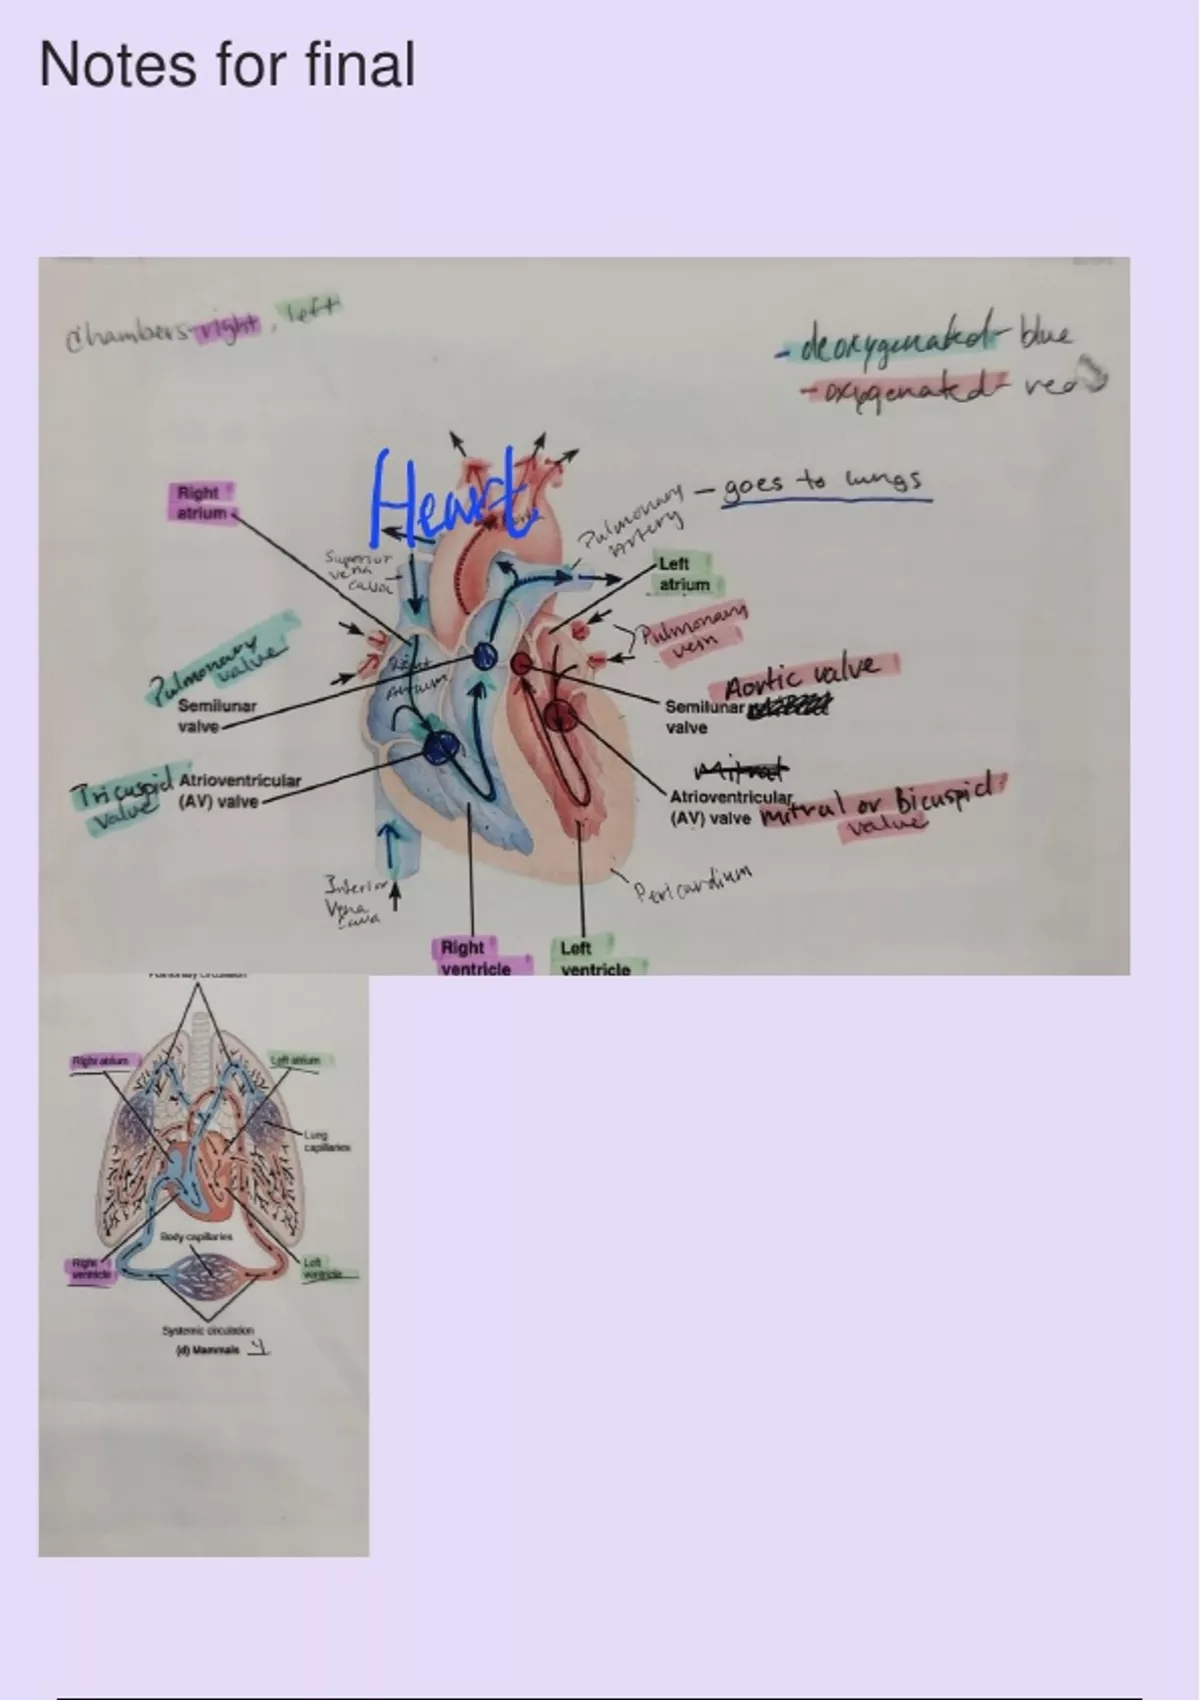 Notes for final
Chambers-right, left
- deoxygenated- blue
- oxygenated- red
Heart
Right
atrium
Superior
vena
cava
Pulmonary
Artery
- goes to lungs
Left
atrium
Pulmonary
vein
Right
Atrium
Pulmonary
valve
Semilunar
valve
Aortic valve
Semilunar
valve
Tricuspid
valve
Atrioventricular
(AV) valve
Mitral
Atrioventricular
(AV) valve
Mitral or Bicuspid
valve
Inferior
Vena
Cava
Pericardium
Right
ventricle
Left
ventricle
Pulmonary circulation
Right atrium
Left atrium
Lung
capillaries
Body capillaries
Right
ventricle
Left
ventricle
Systemic circulation
(d) Mammals 4